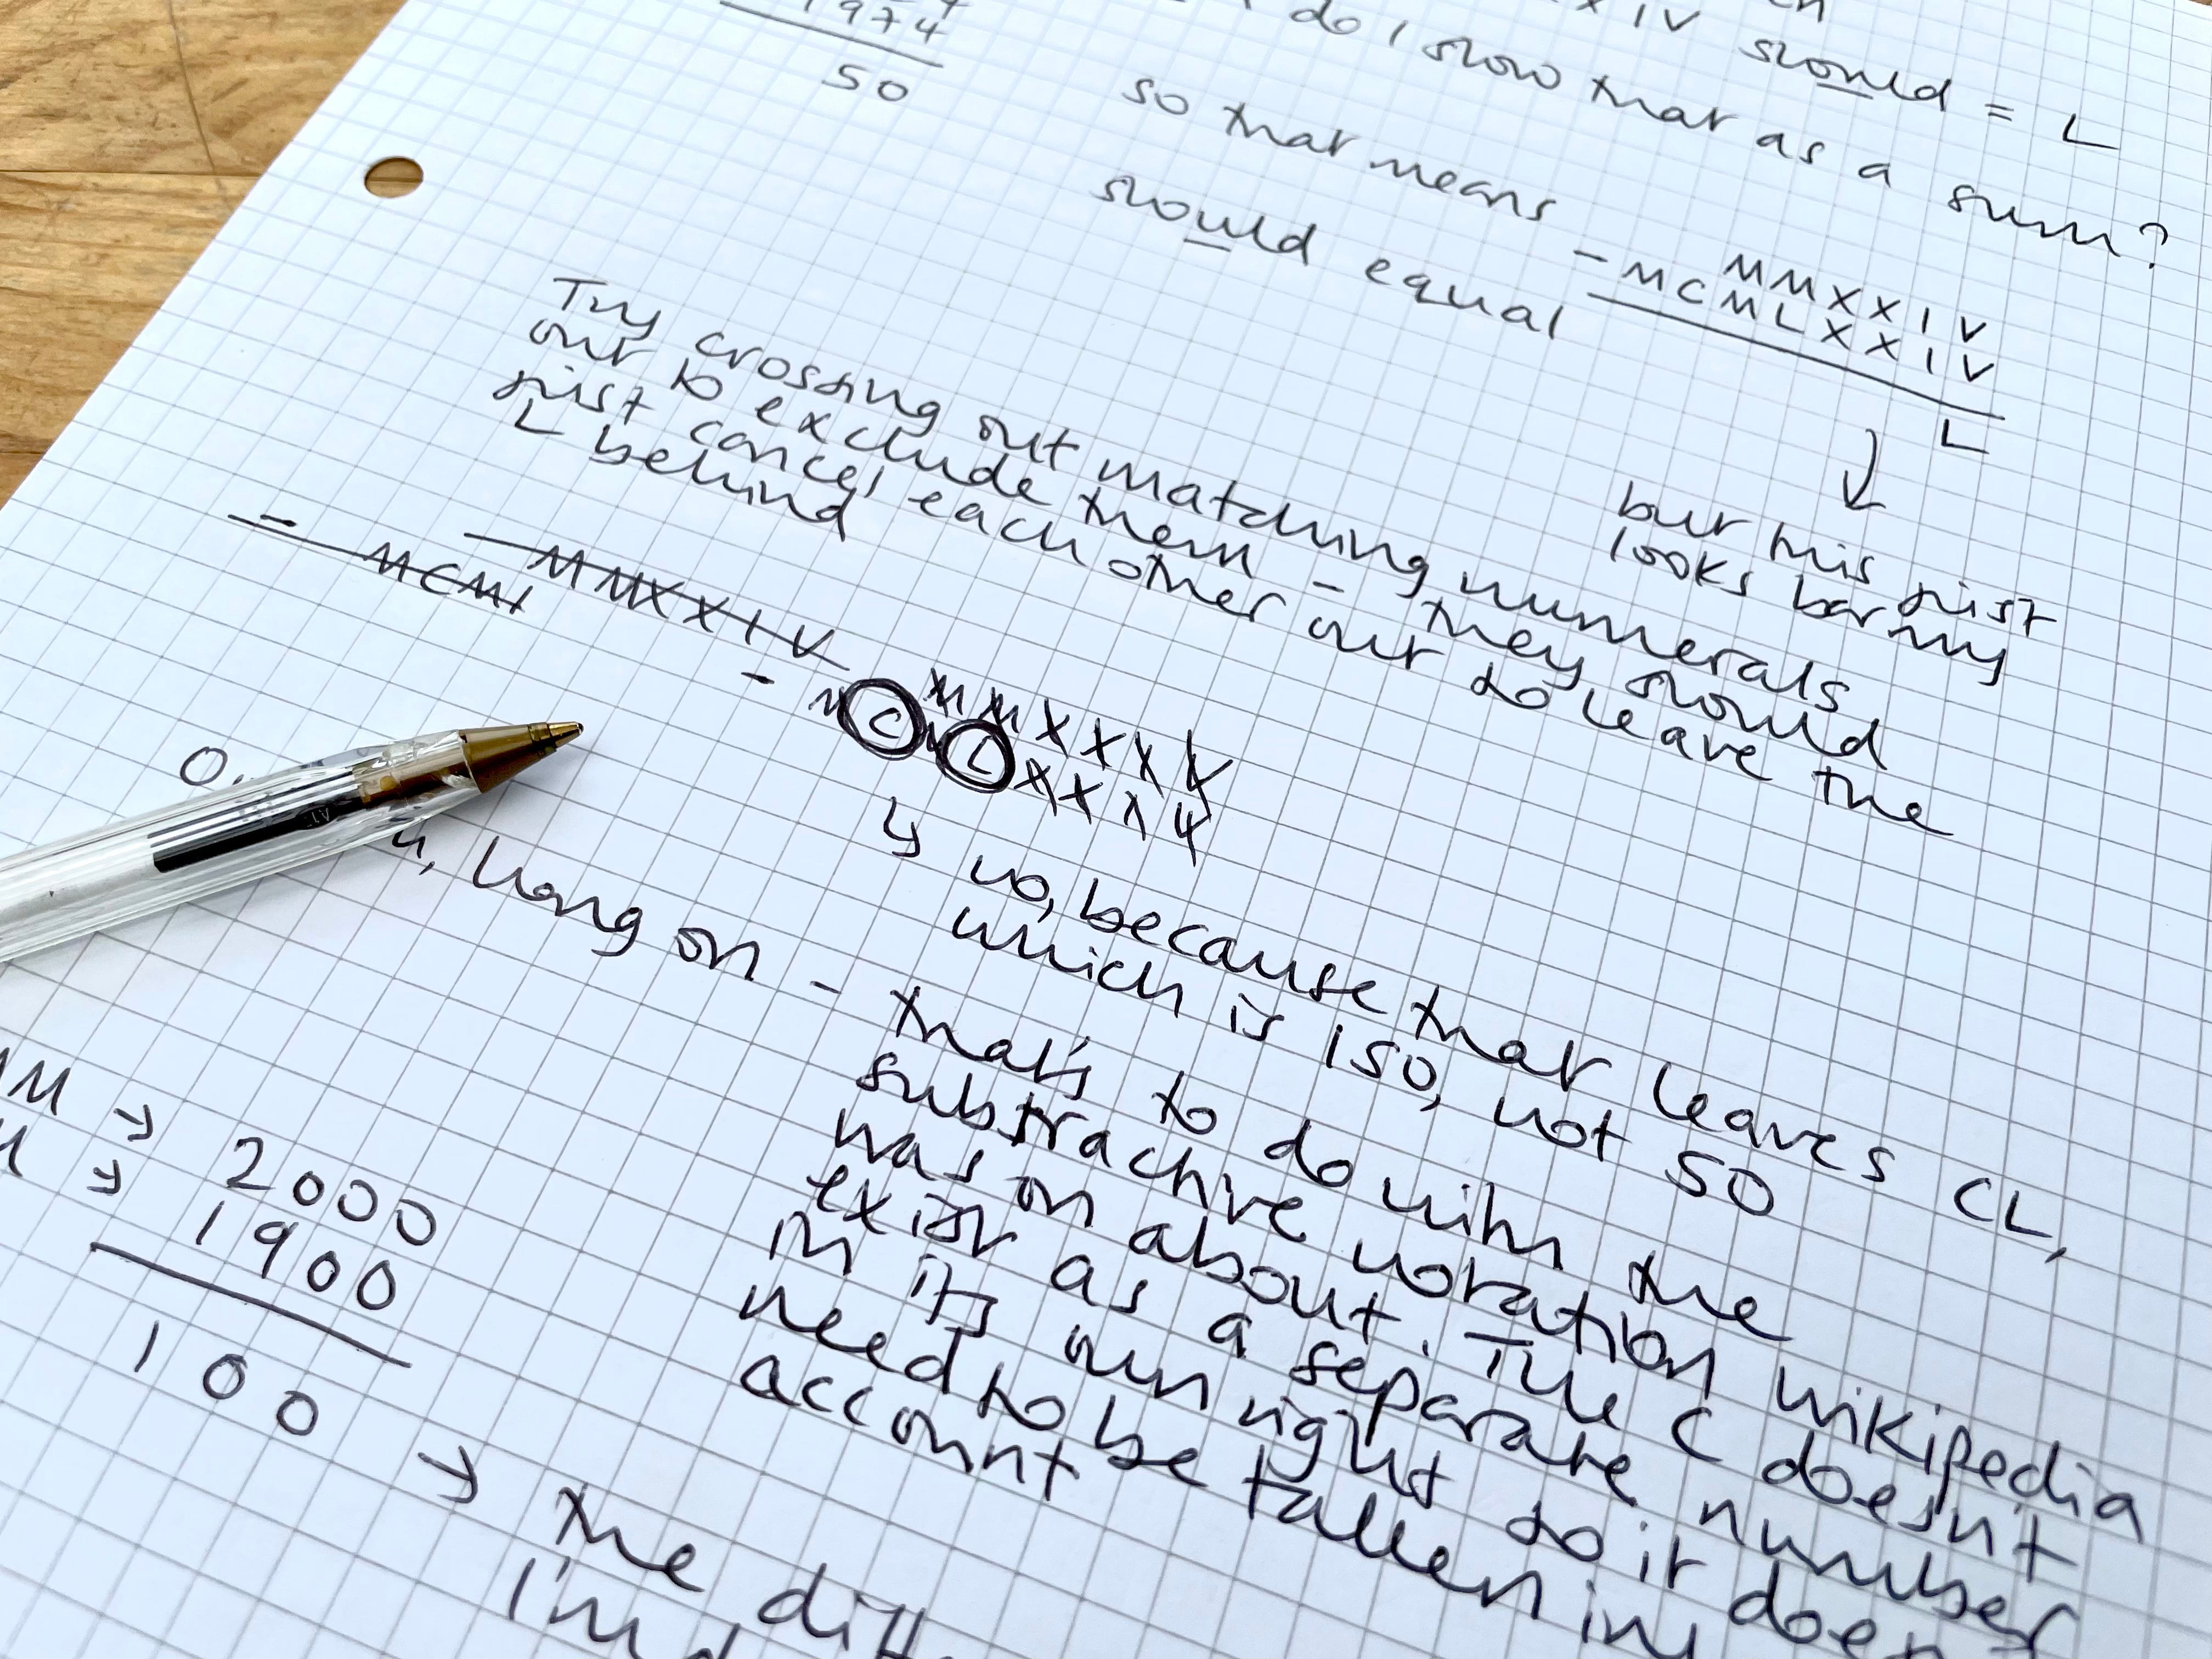 1974
50
XIV should = L
do I show that as a sum?
so that means - MMXXIV
MCMLXXIV
should equal
L
but this just
looks barmy
Try crossing out matching numerals
out to exclude them - they should
just cancel each other out to leave the
L behind
- MMXXIV
MCML
- MMXXIV
MCMLXXIV
no, because that leaves CL,
which is 150, not 50
hang on - that's to do with the
subtractive notation wikipedia
was on about. The C doesn't
exist as a separate number
in its own right so it doesn
need to be taken in
account
M → 2000
→ 1900
100
→ the diff